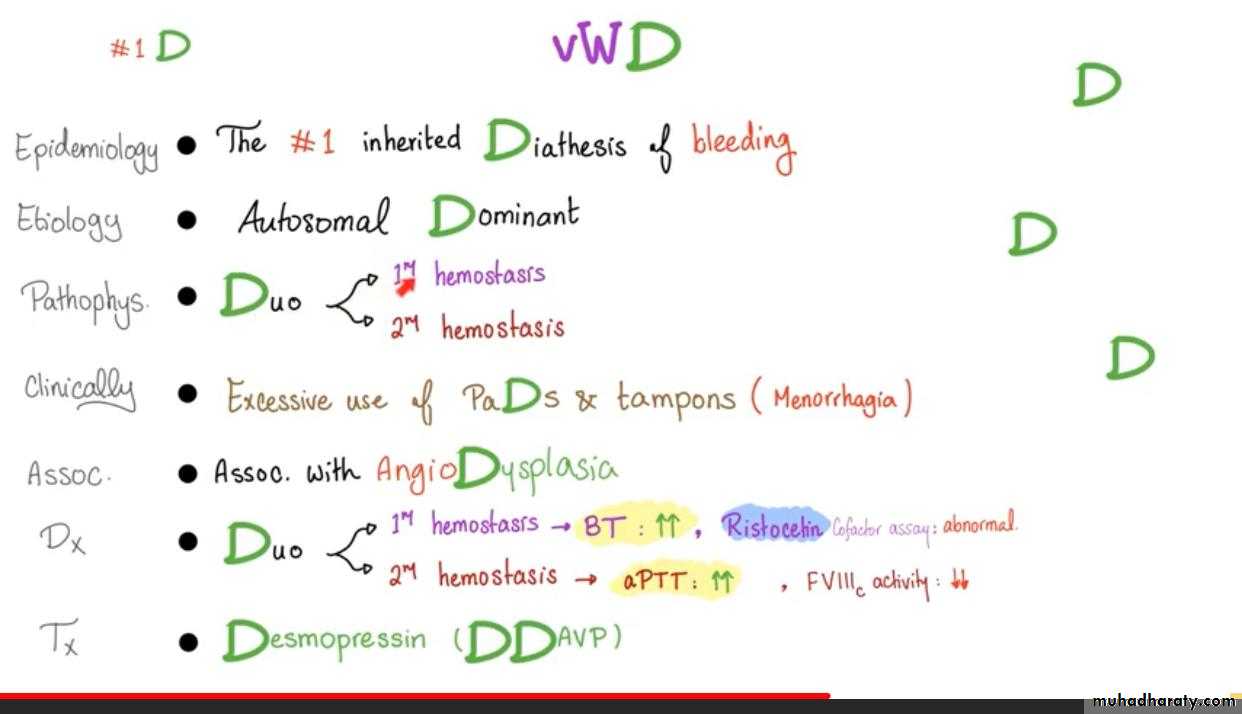 #1 D
vWD
D
Epidemiology • The #1 inherited Diathesis of bleeding
Etiology • Autosomal Dominant
D
Pathophys. • Duo
1ry hemostasis
2ry hemostasis
D
Clinically • Excessive use of PaDs & tampons (Menorrhagia)
Assoc. • Assoc. with AngioDysplasia
Dx • Duo
1ry hemostasis → BT : ↑↑ , Ristocetin Cofactor assay: abnormal.
2ry hemostasis → aPTT: ↑↑ , FVIIIc activity: ↓↓
Tx • Desmopressin (DDAVP)
muhadharaty.com